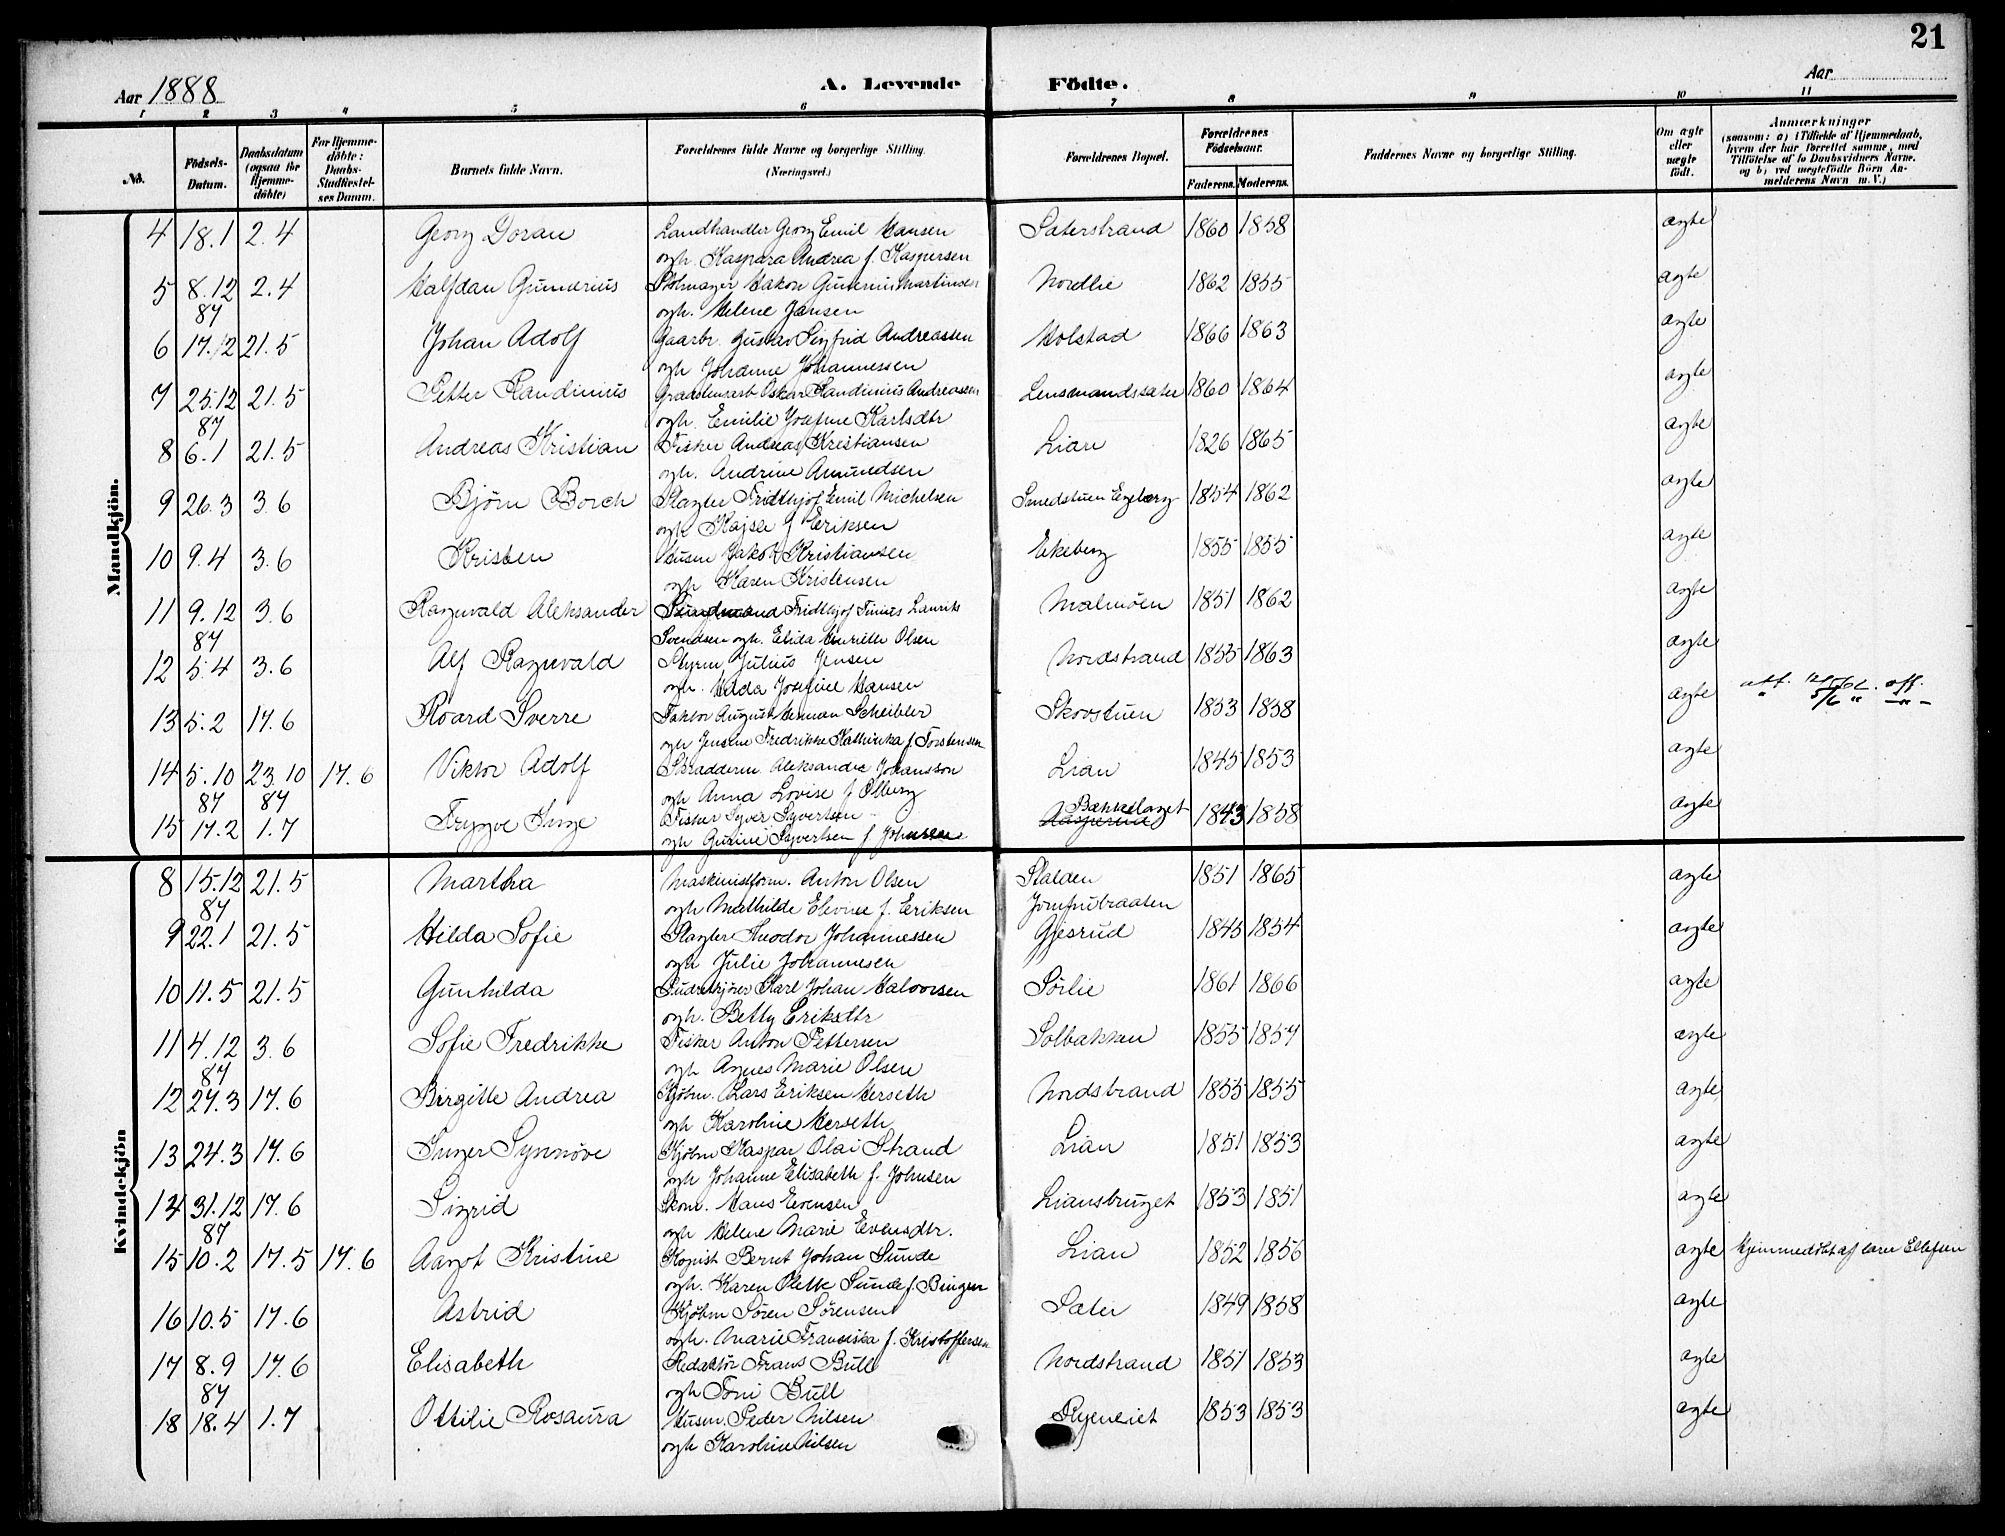 21
Aar 1888
A. Levende Födte.
Aar
1 2 3 4 5 6 7 8 9 10 11
No.
Födsels-Datum.
Daabsdatum (ogsaa för Hjemmedöbte)
For Hjemmedöbte: Daabs-Stadfæstelses Datum.
Barnets fulde Navn.
Forældrenes fulde Navne og borgerlige Stilling. (Næringsvei.)
Forældrenes Bopæl.
Forældrenes Födselsaar.
Faderens. Moderens.
Faddernes Navne og borgerlige Stilling.
Om ægte eller uægte födt.
Anmærkninger
(saasom: a) i Tilfælde af Hjemmedaab, hvem der har forrettet samme, med Tilföielse af to Daabsvidners Navne, og b) ved uægtefödte Börn Anmelderens Navn m. V.)
Mandkjön.
4 18.1 2.4 Georg Doran Landhandler Georg Emil Hansen Sæterstrand 1860 1858 ægte
ogh. Kaspara Andrea f. Kaspersen
5 8.12 2.4 Halfdan Gunerius Hakon Gunerius Martinsen Nordlie 1862 1855 ægte
87 ogh. Helene Jansen
6 17.12 21.5 Johan Adolf Gaarbr. Gustav Sigfrid Andreassen Holstad 1866 1863 ægte
ogh Johanne Johannessen
7 25.12 21.5 Petter Randinius Oskar Randinius Andreassen Lensmandssæter 1860 1864 ægte
87 ogh. Emilie Josefine Karlsdtr
8 6.1 21.5 Andreas Kristian Fisker Andreas Kristiansen Lian 1826 1865 ægte
ogh. Andrine Amundsen
9 26.3 3.6 Bjørn Borch Slagter Fridthjof Emil Michelsen Smedstuen Egeberg 1854 1862 ægte
ogh Kajsa f Eriksen
10 9.4 3.6 Kristen Husm Jakob Kristiansen Ekeberg 1855 1855 ægte
ogh Karen Kristensen
11 9.12 3.6 Ragnvald Aleksander Fridthjof Tinius Laurits Malmöen 1851 1862 ægte
87 Svendsen ogh. Elida Henriette Olsen
12 5.4 3.6 Alf Ragnvald Styrm Julius Jensen Nordstrand 1855 1863 ægte
ogh. Hilda Josefine Hansen
13 5.2 17.6 Roard Sverre Faktor August Herman Scheibler Skovstuen 1853 1858 ægte
ogh Jensine Fredrikke Kathinka f. Torstensen
14 5.10 23.10 17.6 Viktor Adolf Skradderm. Aleksander Johansson Lian 1845 1853 ægte
87 87 ogh Anna Lovise f Olberg
15 17.2 1.7 Trygve Inge Fisker Syver Syvertsen Bækkelaget 1843 1858 ægte
ogh Gurine Syvertsen f Johnsen
Kvindekjön
8 15.12 21.5 Martha Maskinistform. Anton Olsen Stalden 1851 1865 ægte
87 ogh Mathilde Elevine f. Eriksen Jomfrubraaten
9 22.1 21.5 Hilda Sofie Slagter Theodor Johannessen Gjesrud 1845 1854 ægte
ogh Julie Johannesen
10 11.5 21.5 Gunhilda Karl Johan Halvorsen Sörlie 1861 1866 ægte
ogh. Betty Eriksdtr
11 4.12 3.6 Sofie Fredrikke Fisker Anton Pettersen Solbakken 1855 1857 ægte
87 ogh Agnes Marie Olsen
12 27.3 17.6 Birgitte Andrea Kjøbm. Lars Eriksen Herseth Nordstrand 1855 1855 ægte
ogh Karoline Herseth
13 24.3 17.6 Inger Synnöve Kjøbm Kaspar Olai Strand Lian 1851 1853 ægte
ogh Johanne Elisabeth f. Johnsen
14 31.12 17.6 Sigrid Skom. Hans Evensen Liansbruget 1853 1851 ægte
87 ogh Helene Marie Evensdtr.
15 10.2 17.5 17.6 Aagot Kristine Kopist Bernt Johan Sunde Lian 1852 1856 ægte Hjemmedöbt af lærer Ellefsen
ogh. Karen Olette Sunde f. Bingen
16 10.5 17.6 Astrid Kjøbm Søren Sørensen Sæter 1849 1858 ægte
ogh. Marie Franciska f. Kristoffersen
17 8.9 17.6 Elisabeth Redaktör Frans Bull Nordstrand 1851 1853 ægte
87 ogh Toni Bull
18 18.4 1.7 Ottilie Rosaura Husm. Peder Nilsen Ryeneiet 1853 1853 ægte
ogh Karoline Nilsen